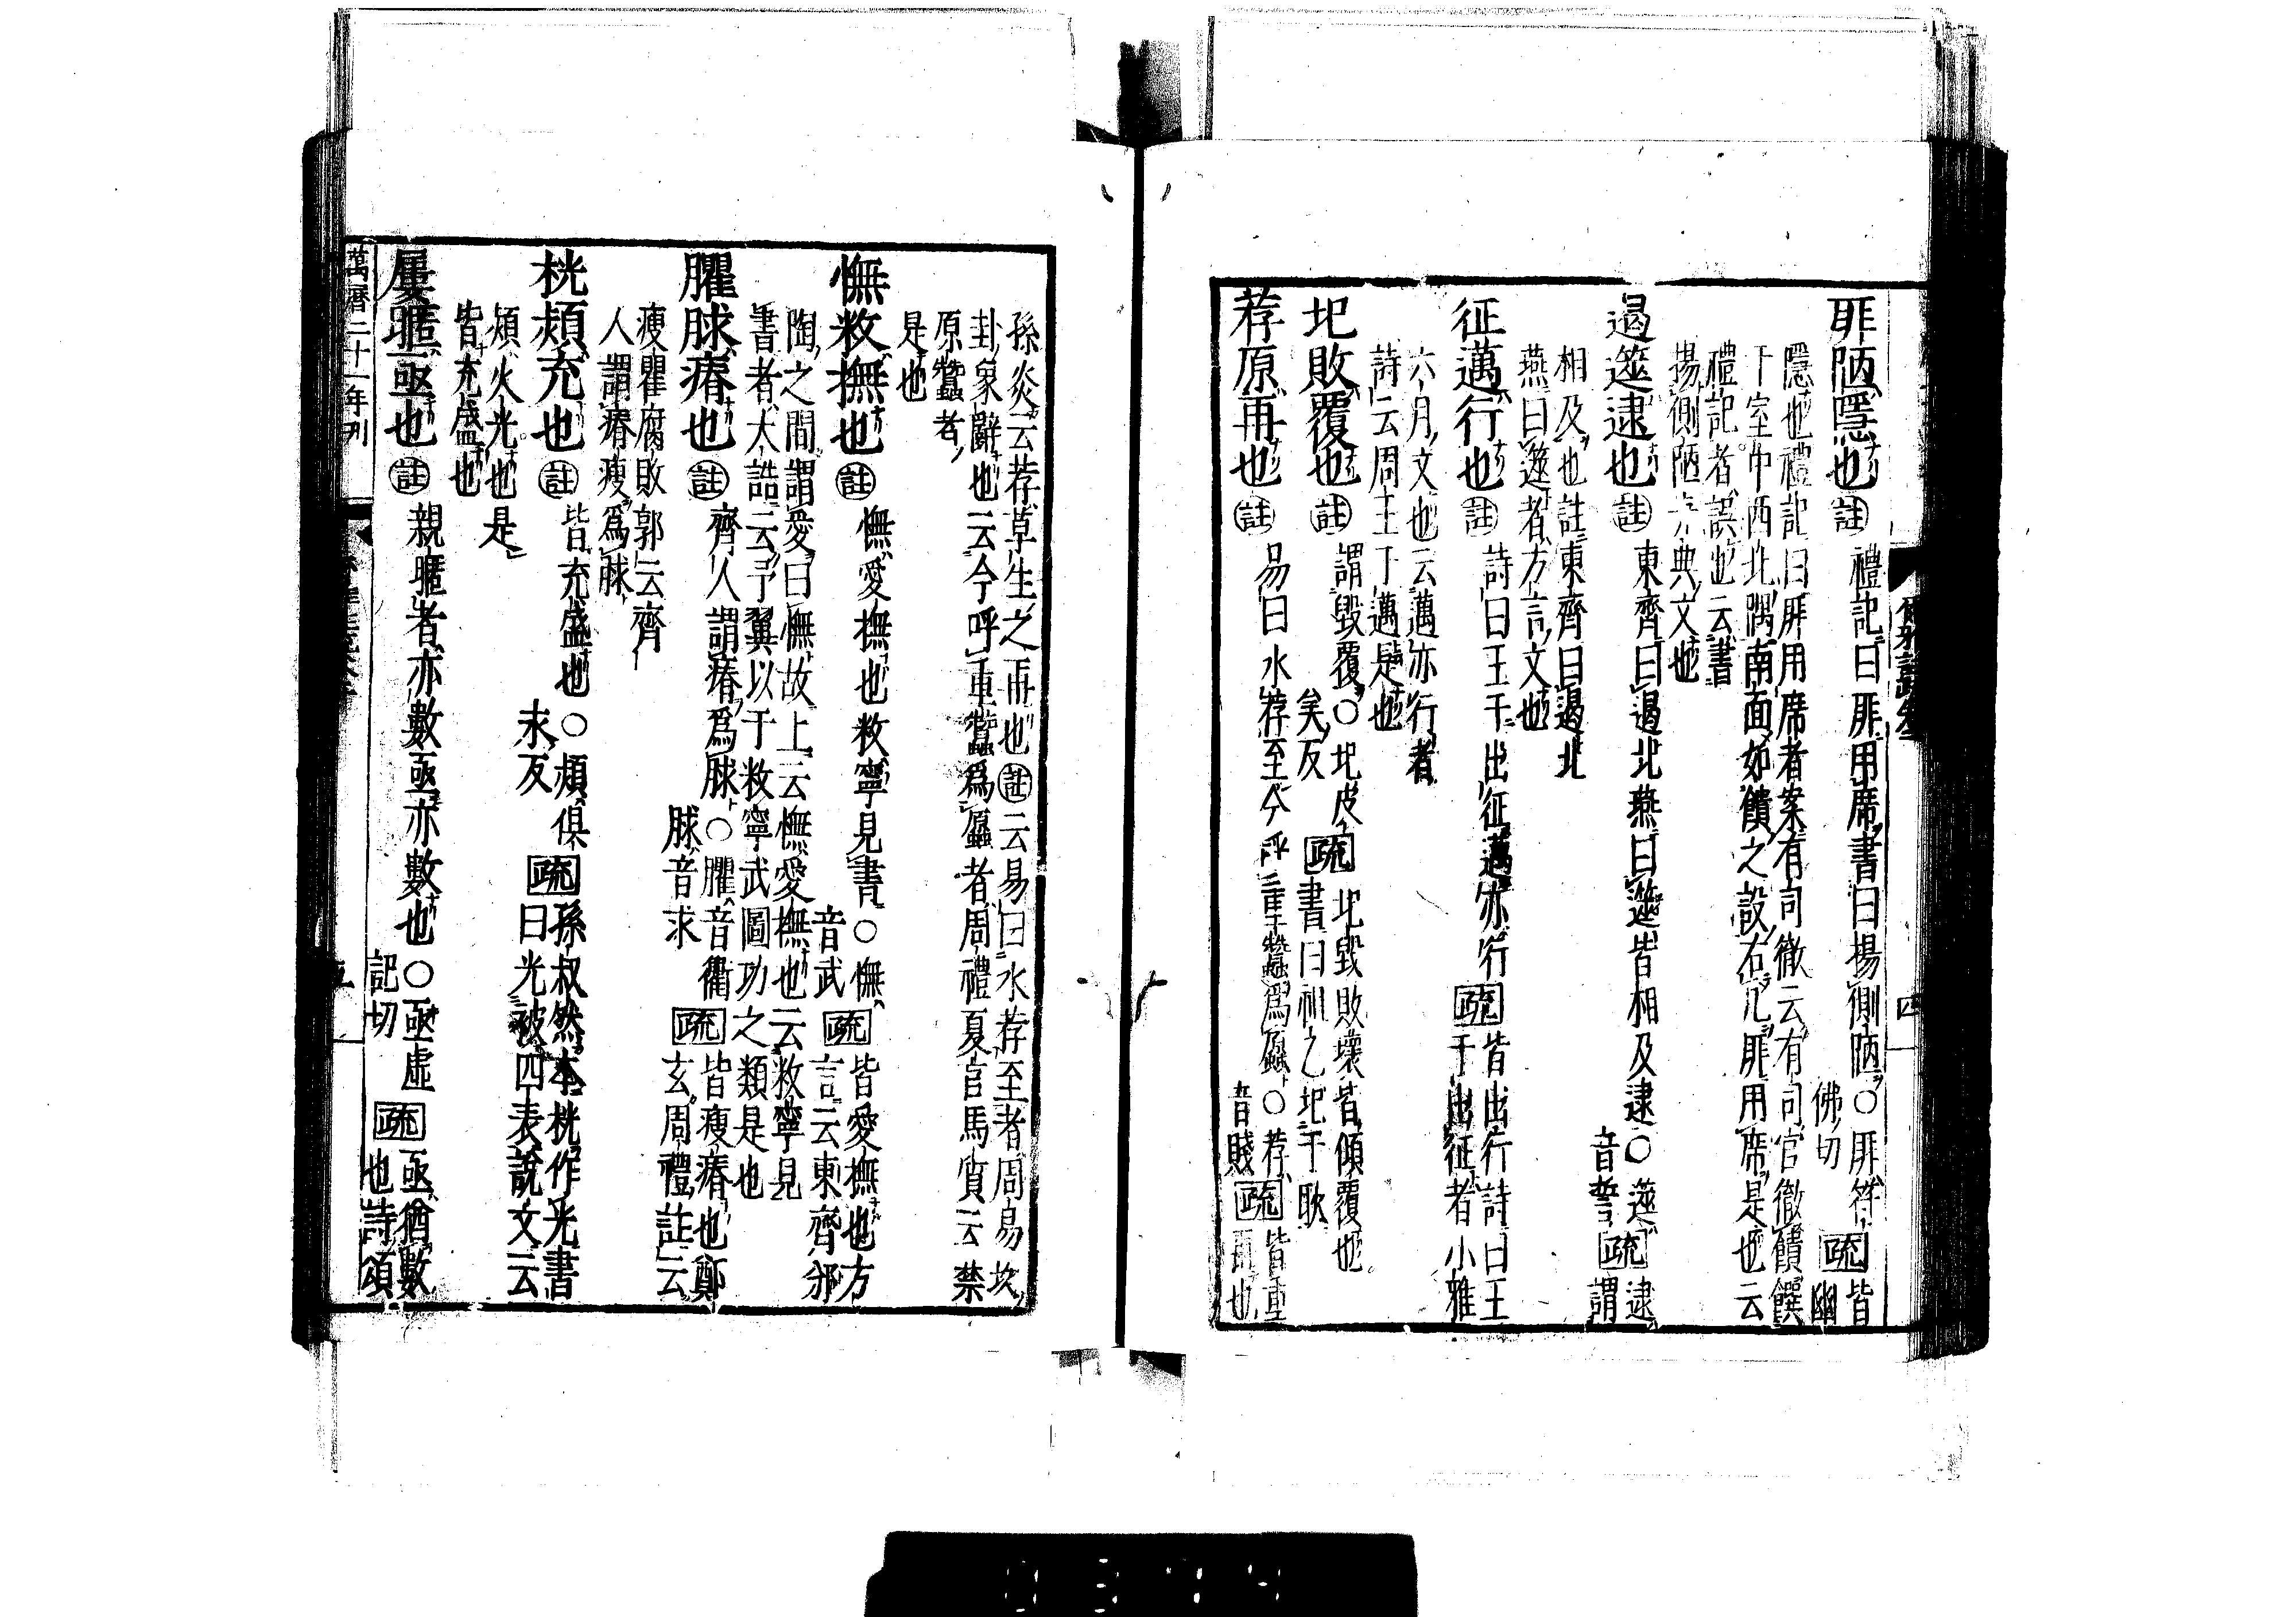 厞陋隱也註禮記曰厞用席書曰揚側陋○厞符
佛切疏皆幽
隱也禮記曰厞用席者案有司徹云有司官徹饋饌
于室中西北隅南面如饋之設右几厞用席是也云
禮記者誤也云書
揚側陋堯典文也
遏遾逮也註東齊曰遏北燕曰遾皆相及逮○遾
音誓疏逮謂
相及也註東齊曰遏北
燕曰遾者方言文也
征邁行也註詩曰王于出征邁亦行疏皆出行詩曰王
于出征者小雅
六月文也云邁亦行者
詩云周王于邁是也
圮敗覆也註謂毀覆○圮皮
矣反疏圮毀敗壞皆傾覆也
書曰祖乙圮于耿
荐原再也註易曰水荐至今呼重蠶爲䘉○荐
音賤疏皆重再也
孫炎云荐草生之再也註云易曰水荐至者周易坎
卦象辭也云今呼重蠶爲䘉者周禮夏官馬質云禁
原蠶者
是也
憮敉撫也註憮愛撫也敉寧見書○憮
音武疏皆愛撫也方
言云東齊邠
陶之間謂愛曰憮故上云憮愛撫也云敉寧見
書者大誥云予翼以于敉寧武圖功之類是也
臞脙瘠也註齊人謂瘠爲脙○臞音衢
脙音求疏皆瘦瘠也鄭
玄周禮註云
瘦臞腐敗郭云齊
人謂瘠瘦爲脙
桄熲充也註皆充盛也○熲俱
永反疏孫叔然本桄作光書
曰光被四表說文云
熲火光也是
皆充盛也
屢暱亟也註親暱者亦數亟亦數也○亟虛
記切疏亟猶數
也詩頌
萬曆二十一年刊
爾雅註疏卷
四
五